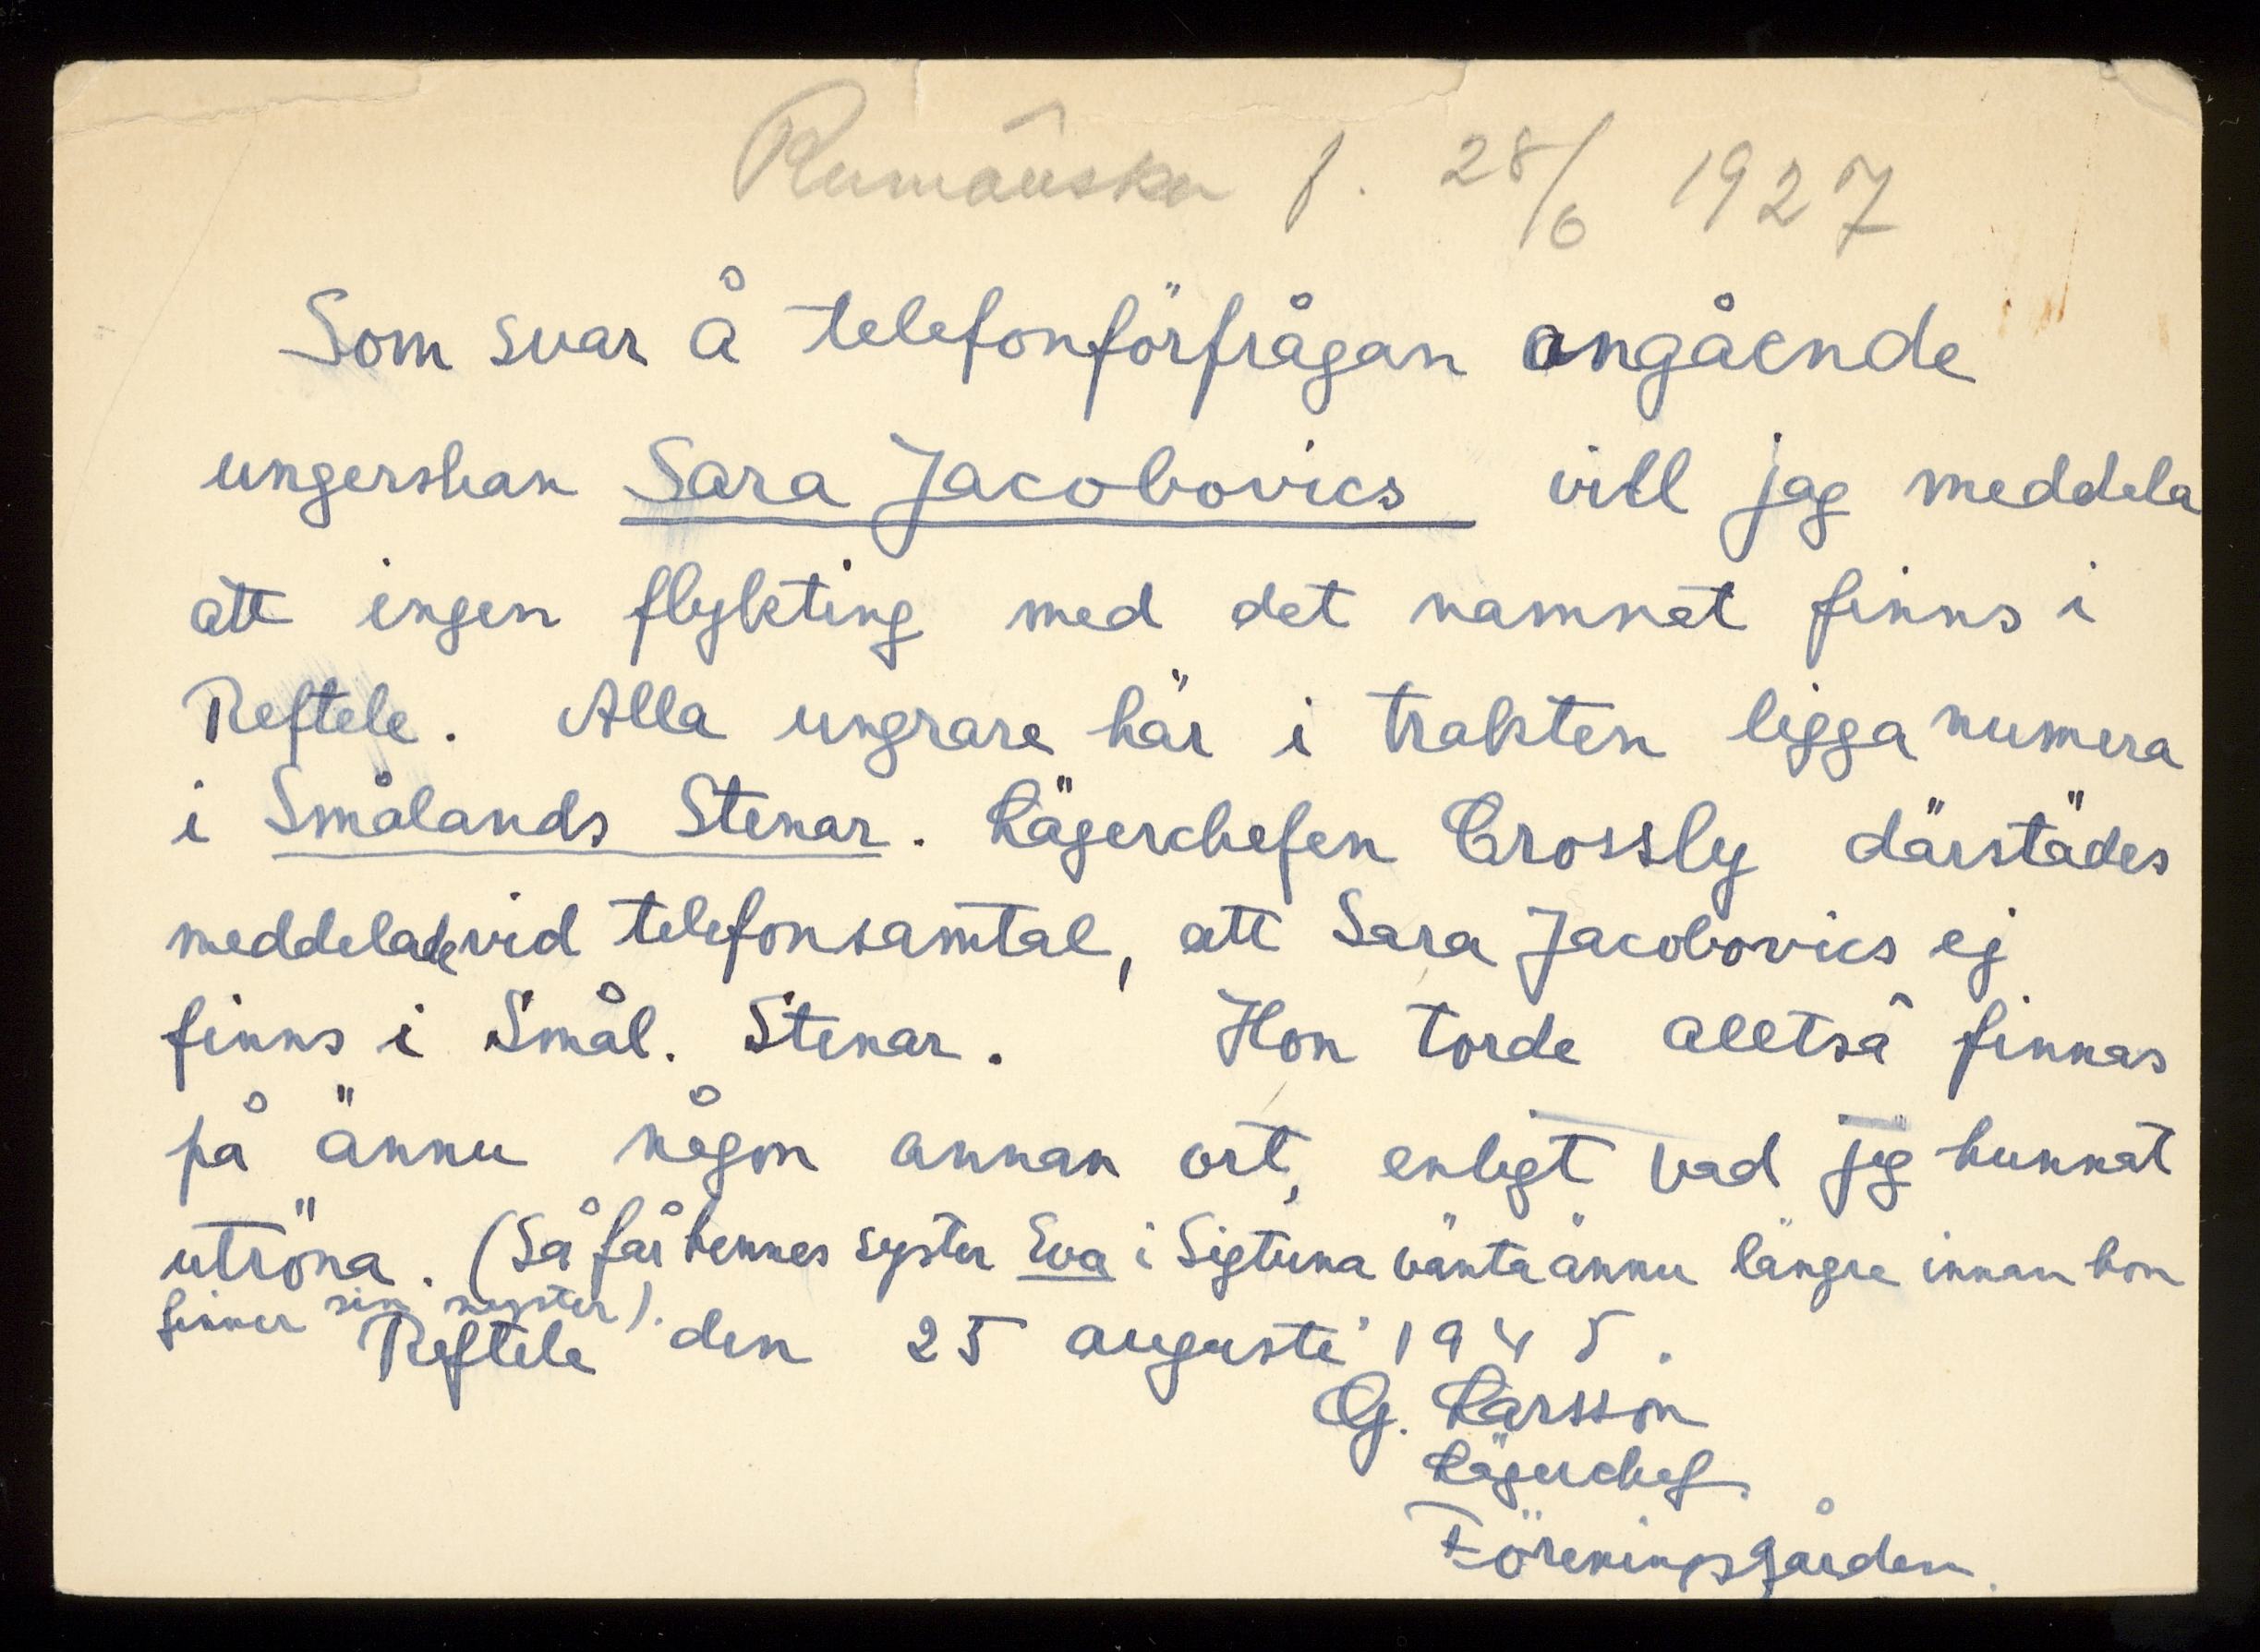 Rumänska f. 28/6 1927
Som svar å telefonförfrågan angående
ungerskan Sara Jacobovics vill jag meddela
att ingen flykting med det namnet finns i
Reftele. Alla ungrare här i trakten ligga numera
i Smålands Stenar. Lägerchefen Crossly därstädes
meddelade vid telefonsamtal, att Sara Jacobovics ej
finns i Smål. Stenar. Hon torde alltså finnas
på ännu någon annan ort, enligt vad jag hunnat
utröna. (Så får hennes syster Eva i Sigtuna vänta ännu längre innan hon
finner sin syster).
Reftele den 25 augusti 1945.
G. Larsson
Lägerchef.
Föreningsgården.